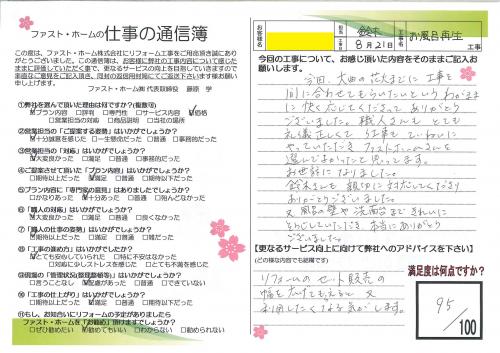 ファスト・ホームの仕事の通信簿
この度は、ファスト・ホーム株式会社にリフォーム工事をご用命頂き誠にありがとうございました。この通信簿は、お客様に弊社の工事内容について感じたままに評価していただく事で、更なるサービスの向上を目指していきますので
率直なご意見をご記入頂き、同封の返信用封筒にてご返送下さいます様お願い申し上げます。
ファスト・ホーム㈱ 代表取締役 藤原 学
①弊社を選んで頂いた理由は何ですか?(複数可)
☑プラン内容 □評判 □専門性 □サービス内容 ☑価格
□営業担当の対応 □商品説明 □当社の場所
②営業担当の「ご提案する姿勢」はいかがでしょうか?
☑十分誠意を感じた □一生懸命だった □普通 □事務的だった
③営業担当の「対応」はいかがでしょうか?
☑大変良かった □満足 □普通 □事務的だった
④ご提案させて頂いた「プラン内容」はいかがでしょうか?
□期待以上だった ☑満足 □普通 □期待以下だった
⑤プラン内容に「専門家の意見」はありましたでしょうか?
□かなりあった ☑十分あった □普通 □殆んどなかった
⑥「職人の対応」はいかがでしたでしょうか?
☑大変良かった □満足 □普通 □良くなかった
⑦「職人の仕事の姿勢」はいかがでしたでしょうか?
☑期待以上だった □満足 □普通 □期待以下だった
⑧「工事の進め方」はいかがでしたでしょうか?
☑とても安心していられた □特に不安はなかった
□完成に少しストレスを感じた □とても不満を感じた
⑨現場の「管理状況(整理整頓等)」はいかがでしたか?
□言うことなし ☑配慮があった □普通 □不満だった
⑩「工事の仕上がり」はいかがでしたでしょうか?
□期待以上だった ☑満足 □普通 □期待以下だった
⑪もし、お知合いにリフォームの予定がありましたら
ファスト・ホームを「お勧め」頂けますでしょうか?
□ぜひ勧めたい ☑勧めてもいい □わからない □勧められない
お客様名
担当
鈴木
工事名
お風呂再生
工事
8月21日
今回の工事について、お感じ頂いた内容をそのままご記入お願いします。
今回、大曲の花火までに工事を
間に合わせてもらいたいというわがまま
に快く応じてくださってありがとう
ございました。職人さんもとても
礼儀正しくて仕事もていねいに
やっていただきファストホームさんを
選んでよかったと思ってます。
お世話になりました。
鈴木さんも親切に対応してくださり
ありがとうございました。
又、風呂の壁や洗面台まできれいに
そうじしていただき、本当にありがとう
ございました。
【更なるサービス向上に向けて弊社へのアドバイスを下さい】
(どの様な内容でも結構です)
リフォームのセット販売の
幅を広げてもらえると又
利用したくなる気がします。
満足度は何点ですか?
95/100